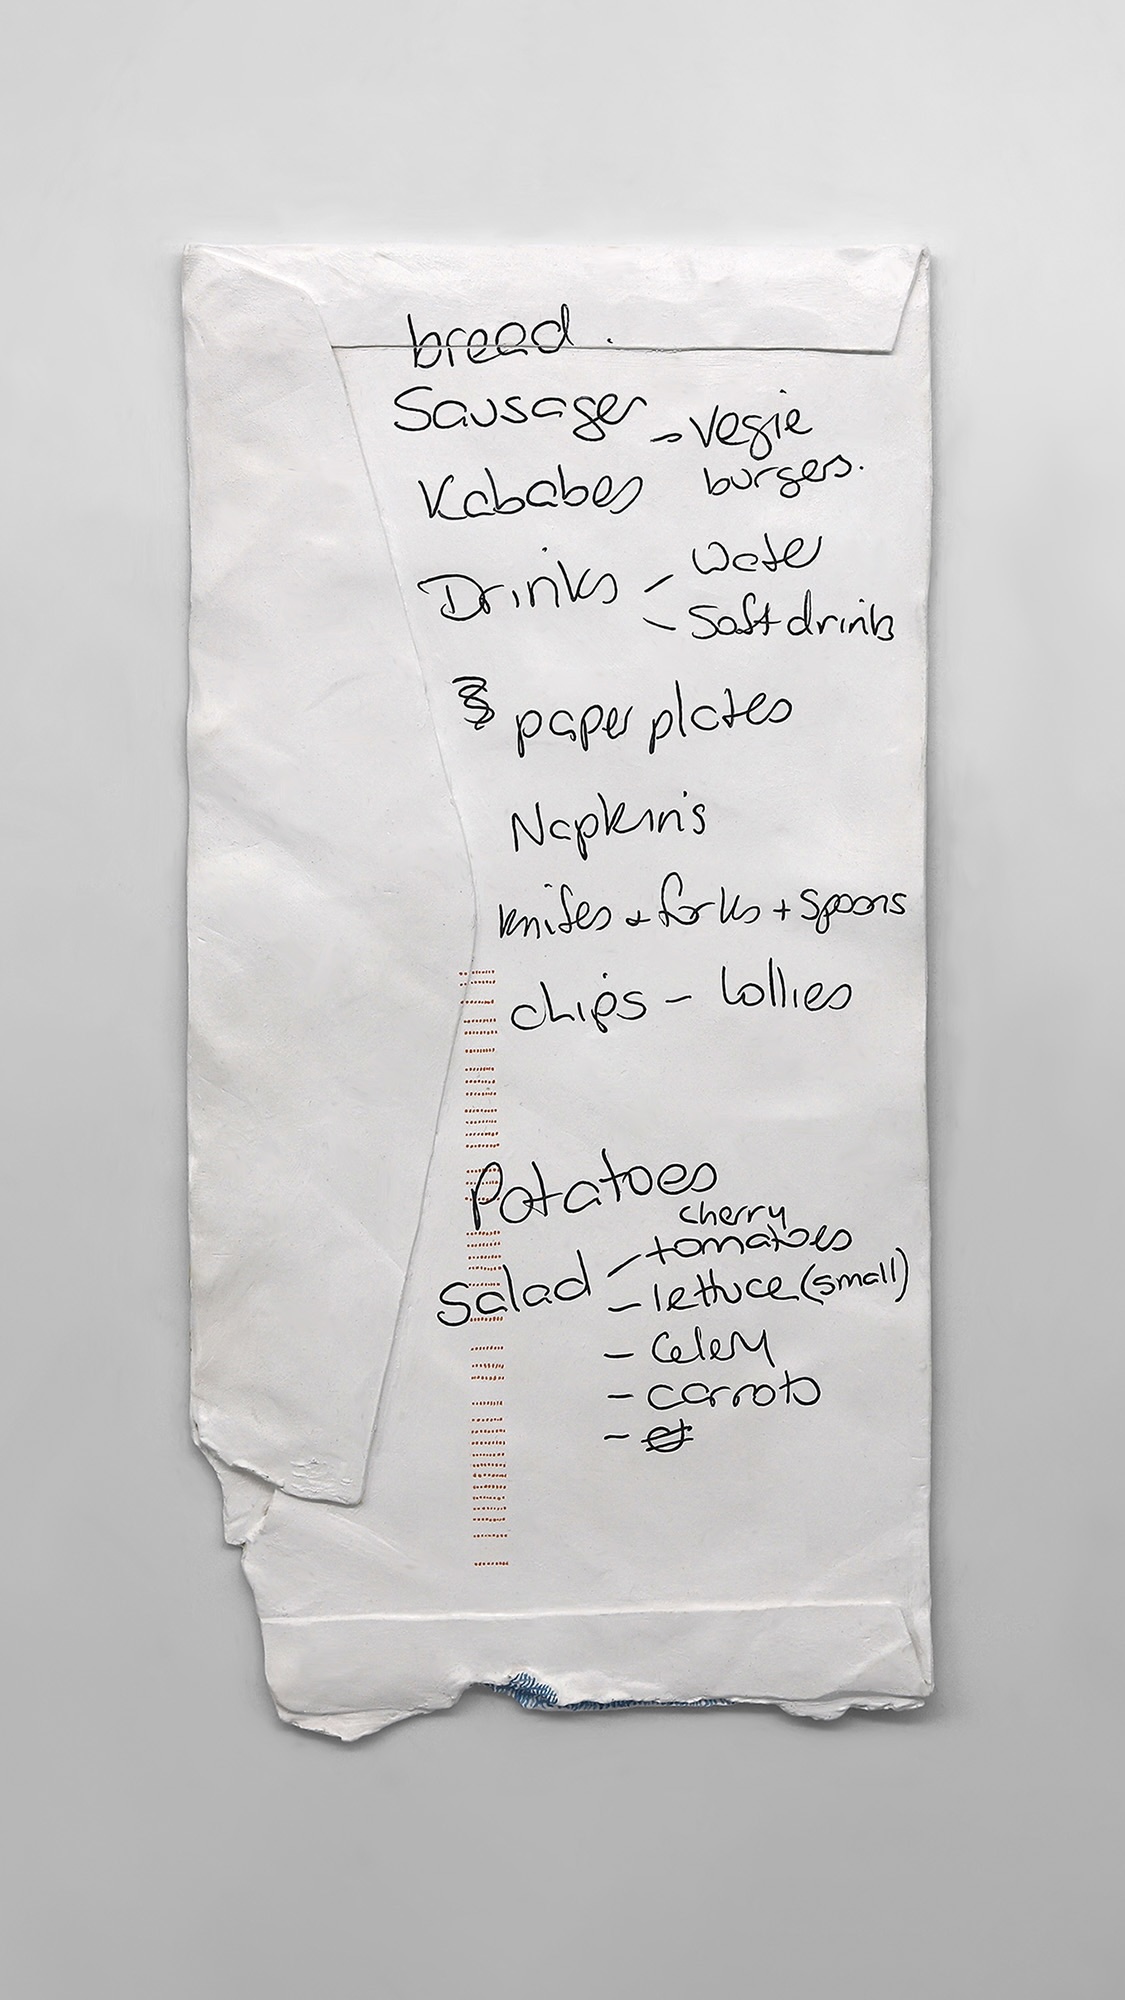 bread.
Sausages - vegie
burgers.
Kababes
Drinks - water
- Soft drinks
paper plates
Napkins
knifes + forks + spoons
chips - lollies
Potatoes
cherry
Salad - tomatoes
- lettuce (small)
- Celery
- carrots
-